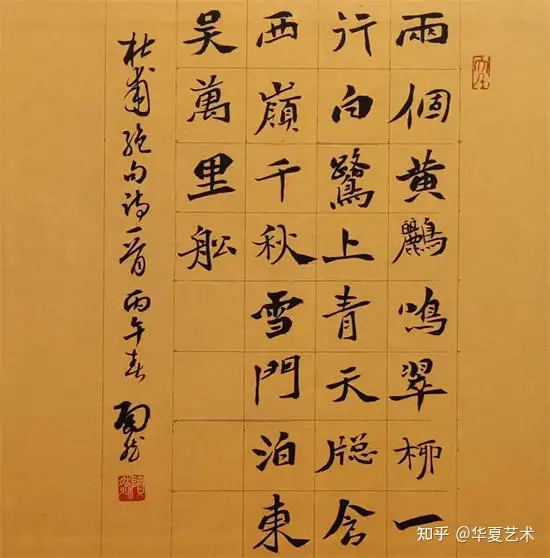 兩個黄鸝鳴翠柳一
行白鷺上青天牕含
西嶺千秋雪門泊東
吴萬里舩
杜甫絶句诗一首 丙午春
知乎 @华夏艺术